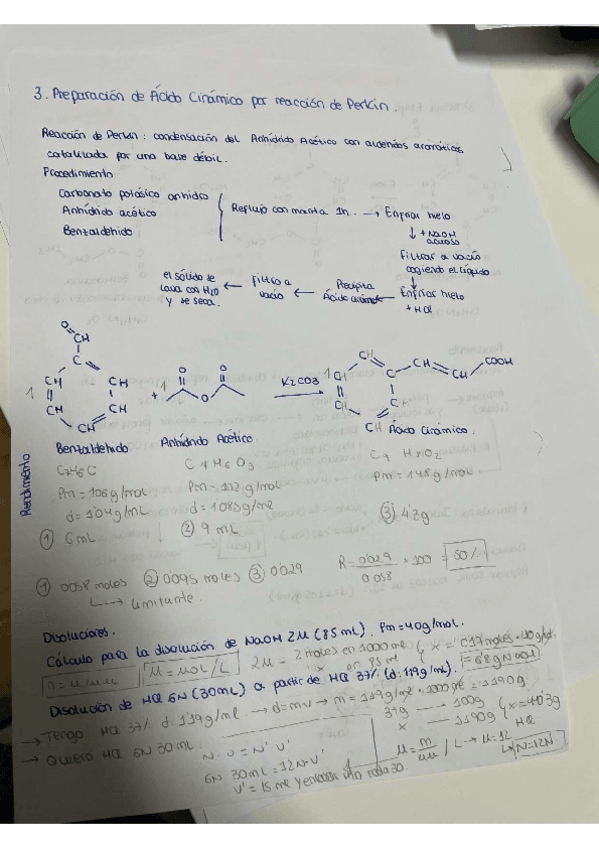 3. Preparación de Ácido Cinámico por reacción de Perkin.
Reacción de Perkin: condensación del Anhídrido Acético con aldehídos aromáticos
catalizada por una base débil.
Procedimiento
Carbonato potásico anhidro
Anhídrido acético
Benzaldehído
Reflujo con manta 1h. → Enfriar hielo
↓ + NaOH
acuoso
Filtrar a vacío
cogiendo el líquido
↓
Enfriar hielo
+ HCl
← Precipita
Ácido
← Filtro a
vacío
← el sólido se
lava con H2O
y se seca.
O
CH
C
CH CH
CH CH
CH
1
+
1
O O
O
K2CO3
→
1
CH
CH C CH CH COOH
CH CH
CH
Benzaldehído Anhídrido Acético Ácido Cinámico.
C4H6O3
Rendimiento
Pm = 106 g/mol Pm = 102 g/mol Pm = 148 g/mol
d = 1'04 g/mL d = 1'083 g/ml
① 6 mL ② 9 mL ③ 4'2g
① 0'058 moles ② 0'095 moles ③ 0'029
↳ Limitante.
R = 0'029 / 0'058 × 100 = 50%
Disoluciones.
Cálculo para la disolución de NaOH 2M (85 mL). Pm = 40 g/mol.
M = mol/L
2M = 2 moles en 1000 ml
x en 85 ml
x = 0'17 moles · 40 g/mol
= 6'8 g NaOH
Disolución de HCl 6N (30 mL) a partir de HCl 37% (d: 1'19 g/ml).
→ Tengo HCl 37% d: 1'19 g/ml → d = m/v → m = 1'19 g/ml · 1000 ml = 1190g
→ Quiero HCl 6N 30 mL
37g — 100g
x — 1190g
x = 440'3g
HCl
N·V = N'·V'
6N 30 mL = 12N·V'
V' = 15 ml
/ L → M = 12
↳ N = 12N